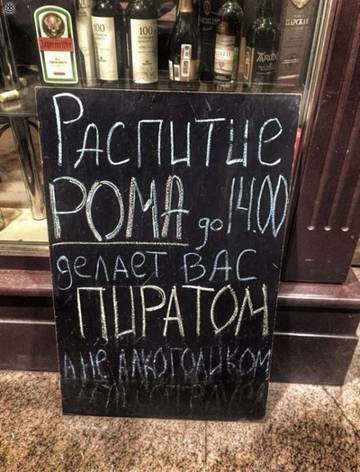 Распитие
РОМА до 14.00
делает ВАС
ПИРАТОМ
А НЕ АЛКОГОЛИКОМ